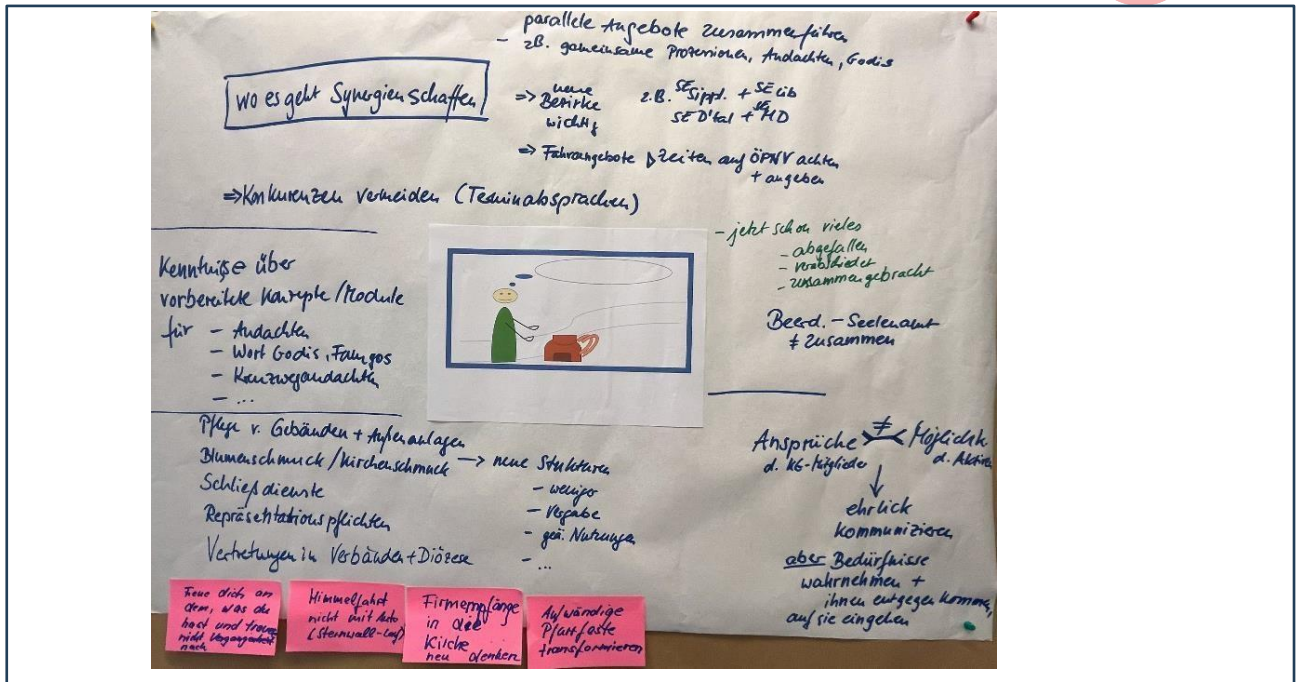 parallele Angebote zusammenführen
- z.B. gemeinsame Prozessionen, Andachten, Godis
wo es geht Synergien schaffen
=> neue
Bezirke
wichtig
z.B. SE Sippl. + SE Lib
SE D'tal + SE MD
=> Fahrangebote Zeiten auf ÖPNV achten
+ angeben
=> Konkurenzen vermeiden (Terminabsprachen)
Kenntniße über
vorbereitete Konzepte / Module
für - Andachten
- Wort Godis, Famgos
- Kreuzwegandachten
- ...
- jetzt schon vieles
- abgefallen
- verabschiedet
- zusammengebracht
Beerd. - Seelenamt
≠ zusammen
Pflege v. Gebänden + Außenanlagen
Blumenschmuck / Kirchenschmuck → neue Strukturen
- weniger
- Vergabe
- geä. Nutzungen
- ...
Schließdienste
Repräsentationspflichten
Vertretungen in Verbänden + Diözese
Ansprüche ≠ Möglichk.
d. KG-Mitglieder d. Aktiven
ehrlich
kommunizieren
aber Bedürfnisse
wahrnehmen +
ihnen entgegen kommen,
auf sie eingehen
Freue dich an
dem, was du
hast und traure
nicht Vergangenheit
nach
Himmelfahrt
nicht mit Auto
(Sternwall-)
Firmempfänge
in die
Kirche
neu denken
Aufwändige
Pfarrfeste
transformieren